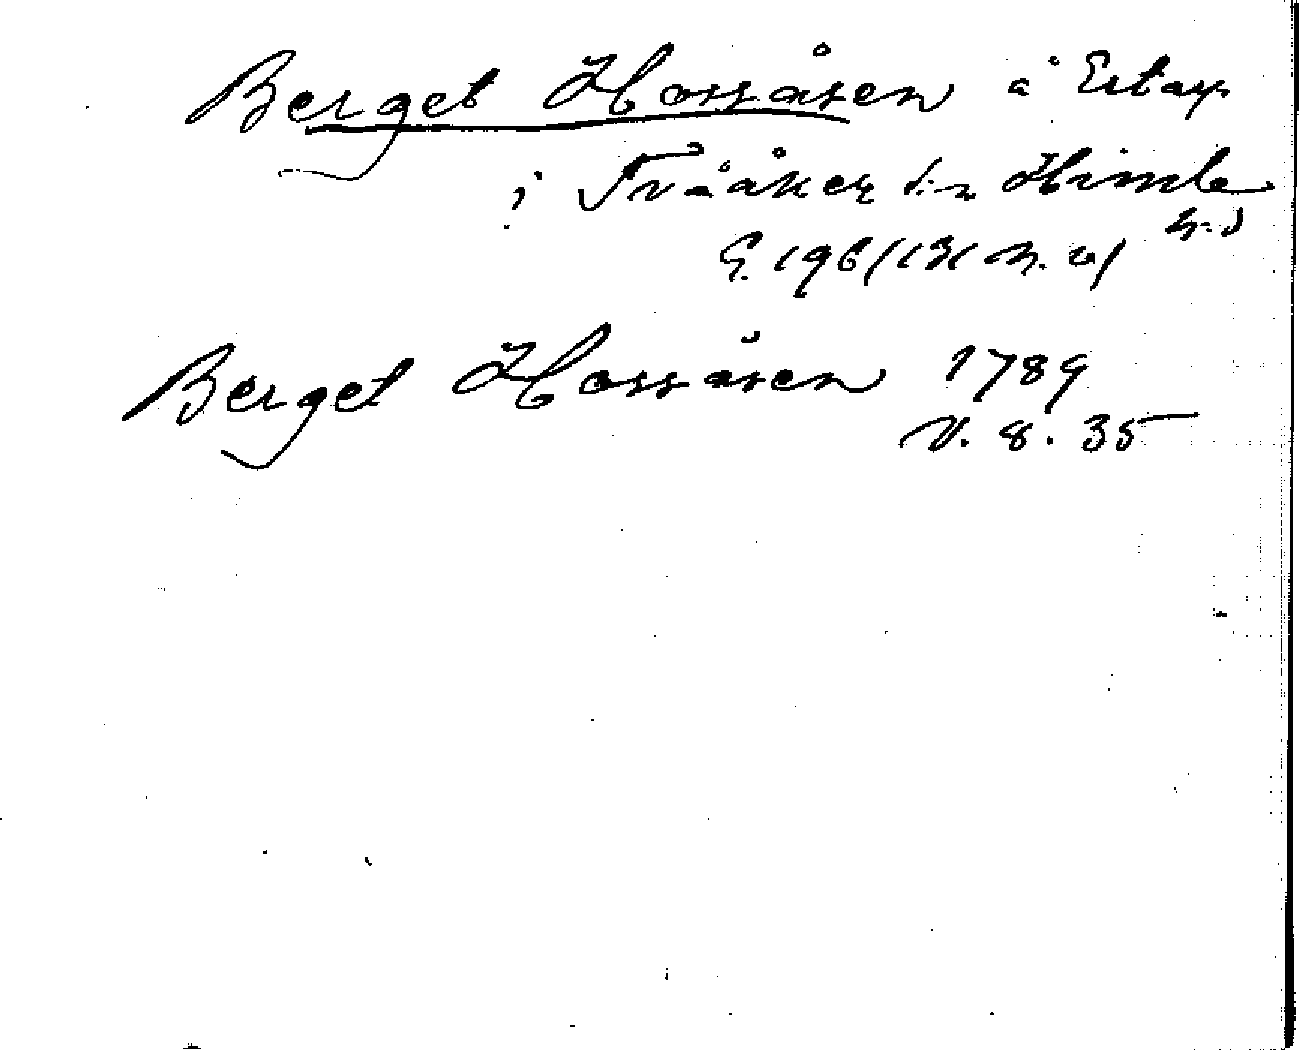 Berget Hossåsen å Ertap
i Tvååker s:n Himle
h:d
E. 196/131
Berget Hossåsen 1789
V. 8. 35